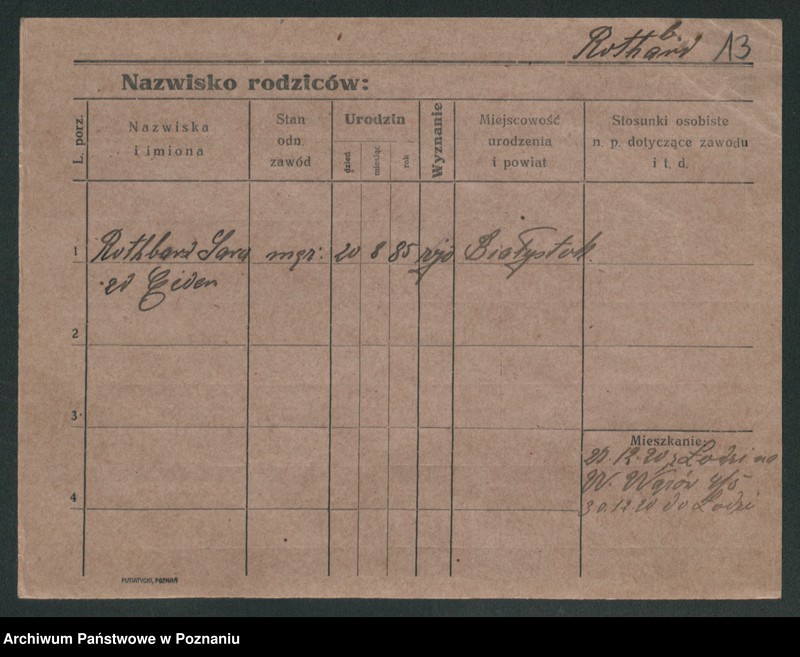 Rothbard 13
Nazwisko rodziców:
L. porz.
Nazwiska
i imiona
Stan
odn.
zawód
Urodzin
dzień
miesiąc
rok
Wyznanie
Miejscowość
urodzenia
i powiat
Stosunki osobiste
n. p. dotyczące zawodu
i t. d.
1 Rothbard Sara 20 8 85 Białystok.
zd Eiden
2
3
Mieszkanie:
12.20 z Łodzi na
W. 4/5
4
30.12.20 do Łodzi
PUTIATYCKI, POZNAŃ
Archiwum Państwowe w Poznaniu